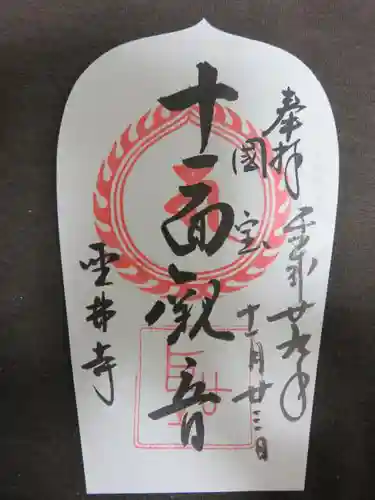 奉拝 平成廿九年
國宝 十一月廿三日
十一面観音
聖林寺